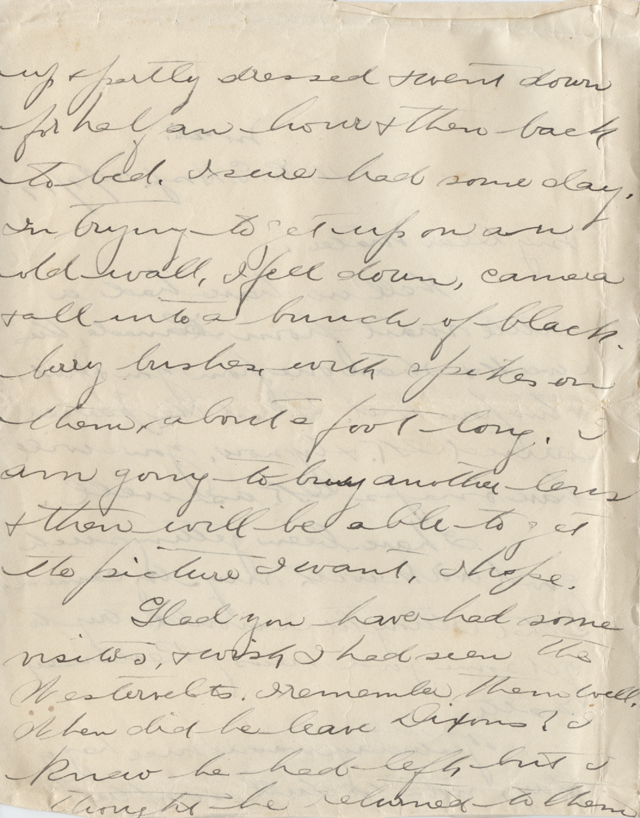 up & partly dressed & went down
for half an hour & then back
to bed. I sure had some day.
In trying to get up on an
old wall, I fell down, camera
& all into a bunch of black-
berry bushes, with spikes on
them, about a foot long. I
am going to buy another lens
& then will be able to get
the picture I want, I hope.
Glad you have had some
visitors, & wish I had seen the
Westervelts. I remember them well.
When did he leave Dixons? I
knew he had left but I
thought he returned to them